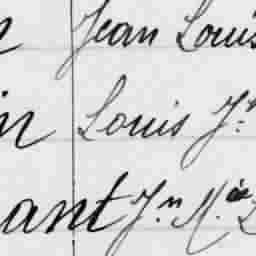 n Jean Louis
in Louis J.
ant J.n M.ie L